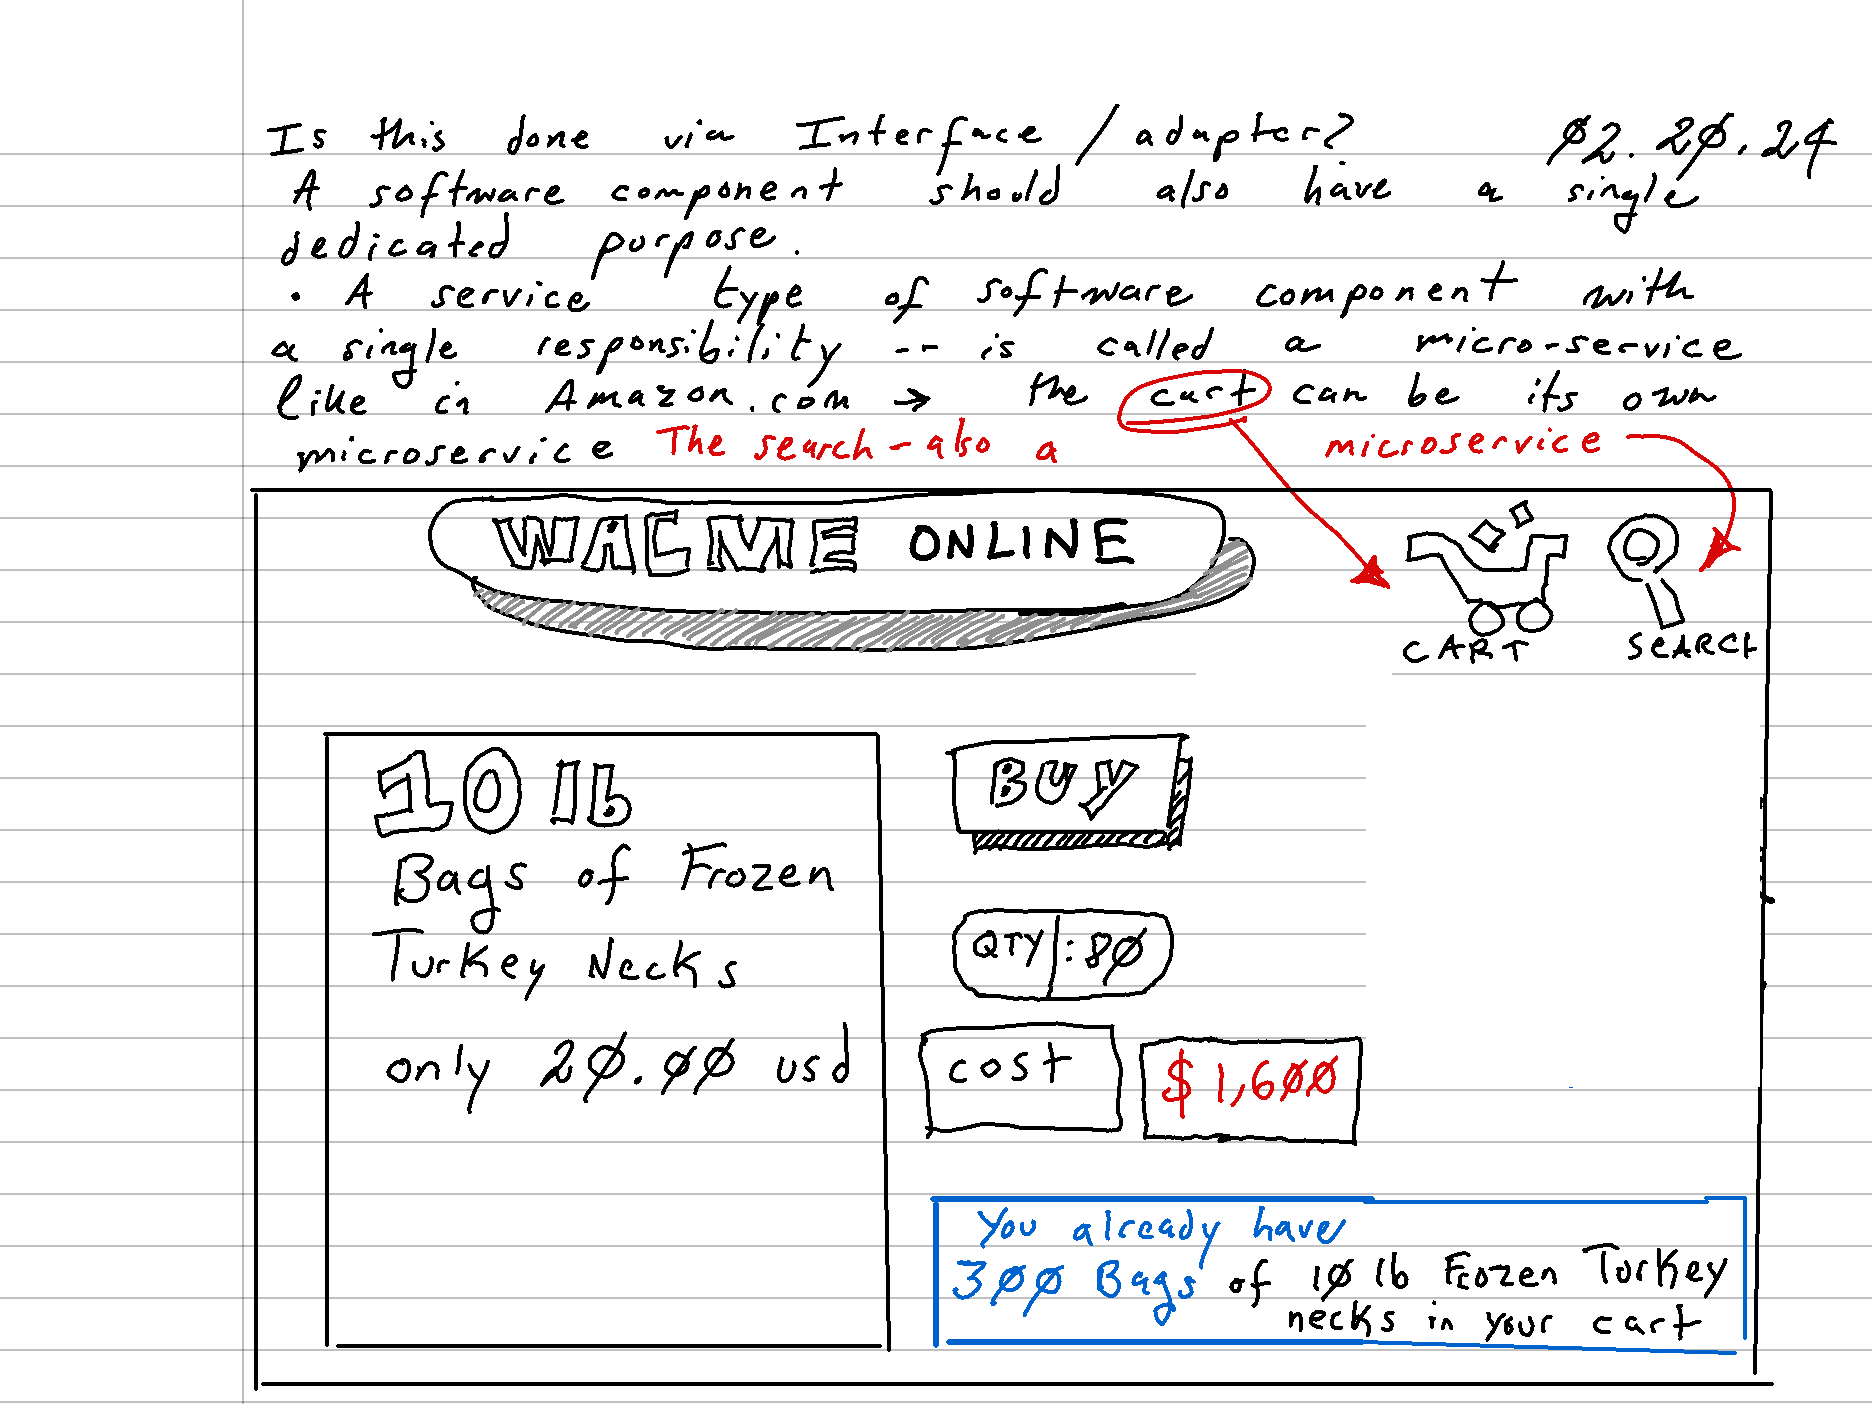 Is this done via Interface / adapter? 02.20.24
A software component should also have a single
dedicated purpose.
• A service type of software component with
a single responsibility -- is called a micro-service
like in Amazon.com → the cart can be its own
microservice The search - also a microservice
WACME ONLINE
CART SEARCH
10 lb
Bags of Frozen
Turkey Necks
only 20.00 usd
BUY
QTY : 80
cost $1,600
You already have
300 Bags of 10 lb Frozen Turkey
necks in your cart